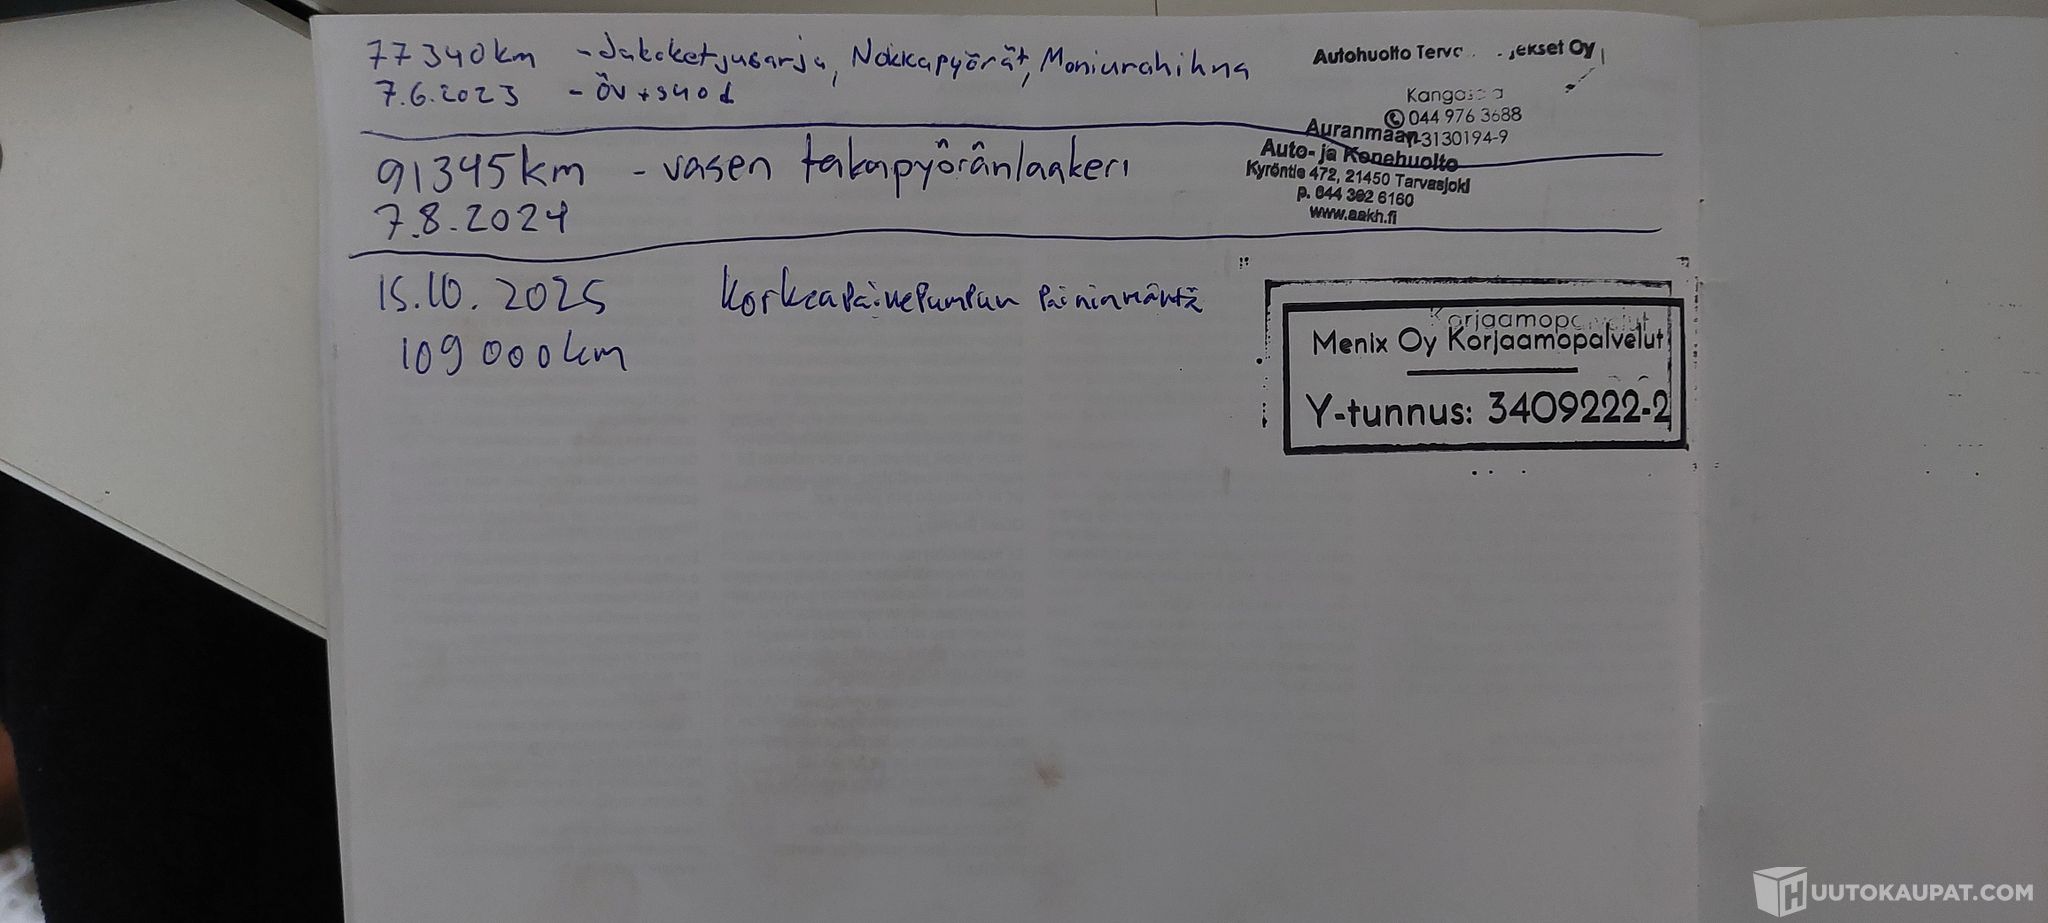 77340km - Jakoketjusarja, Nokkapyörät, Moniurahihna
7.6.2023 - öv + suod
Autohuolto Terv
ekset Oy
Kangas
044 976 3688
3130194-9
91345km - vasen takapyöränlaakeri
7.8.2024
Auranmaan
Auto- ja Konehuolto
Kyröntie 472, 21450 Tarvasjoki
p. 044 302 6160
www.aakh.fi
15.10.2025 korkeapainepumpun paininmäntä
109 000km
Korjaamopalvelut
Menix Oy Korjaamopalvelut
Y-tunnus: 3409222-2
HUUTOKAUPAT.COM